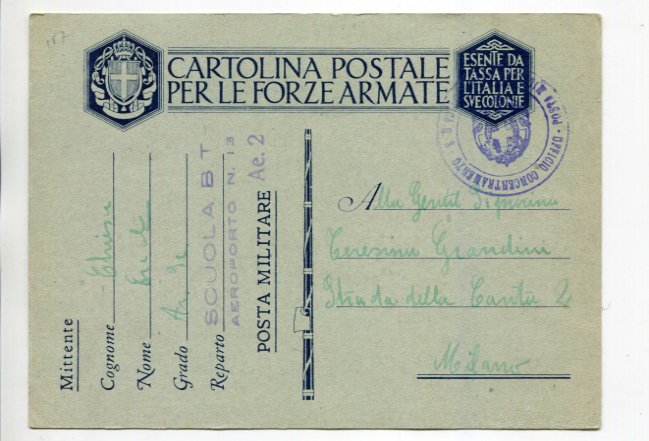 187
CARTOLINA POSTALE
PER LE FORZE ARMATE
ESENTE DA
TASSA PER
L'ITALIA E
SVE COLONIE
UFFICIO CONCENTRAMENTO POSTA
Alla Gentil Signorina
Teresina Grandini
Strada della 2
Milano
Mittente
Cognome
Nome
Grado
Reparto SCUOLA BT
AEROPORTO N. 13
POSTA MILITARE Ae. 2